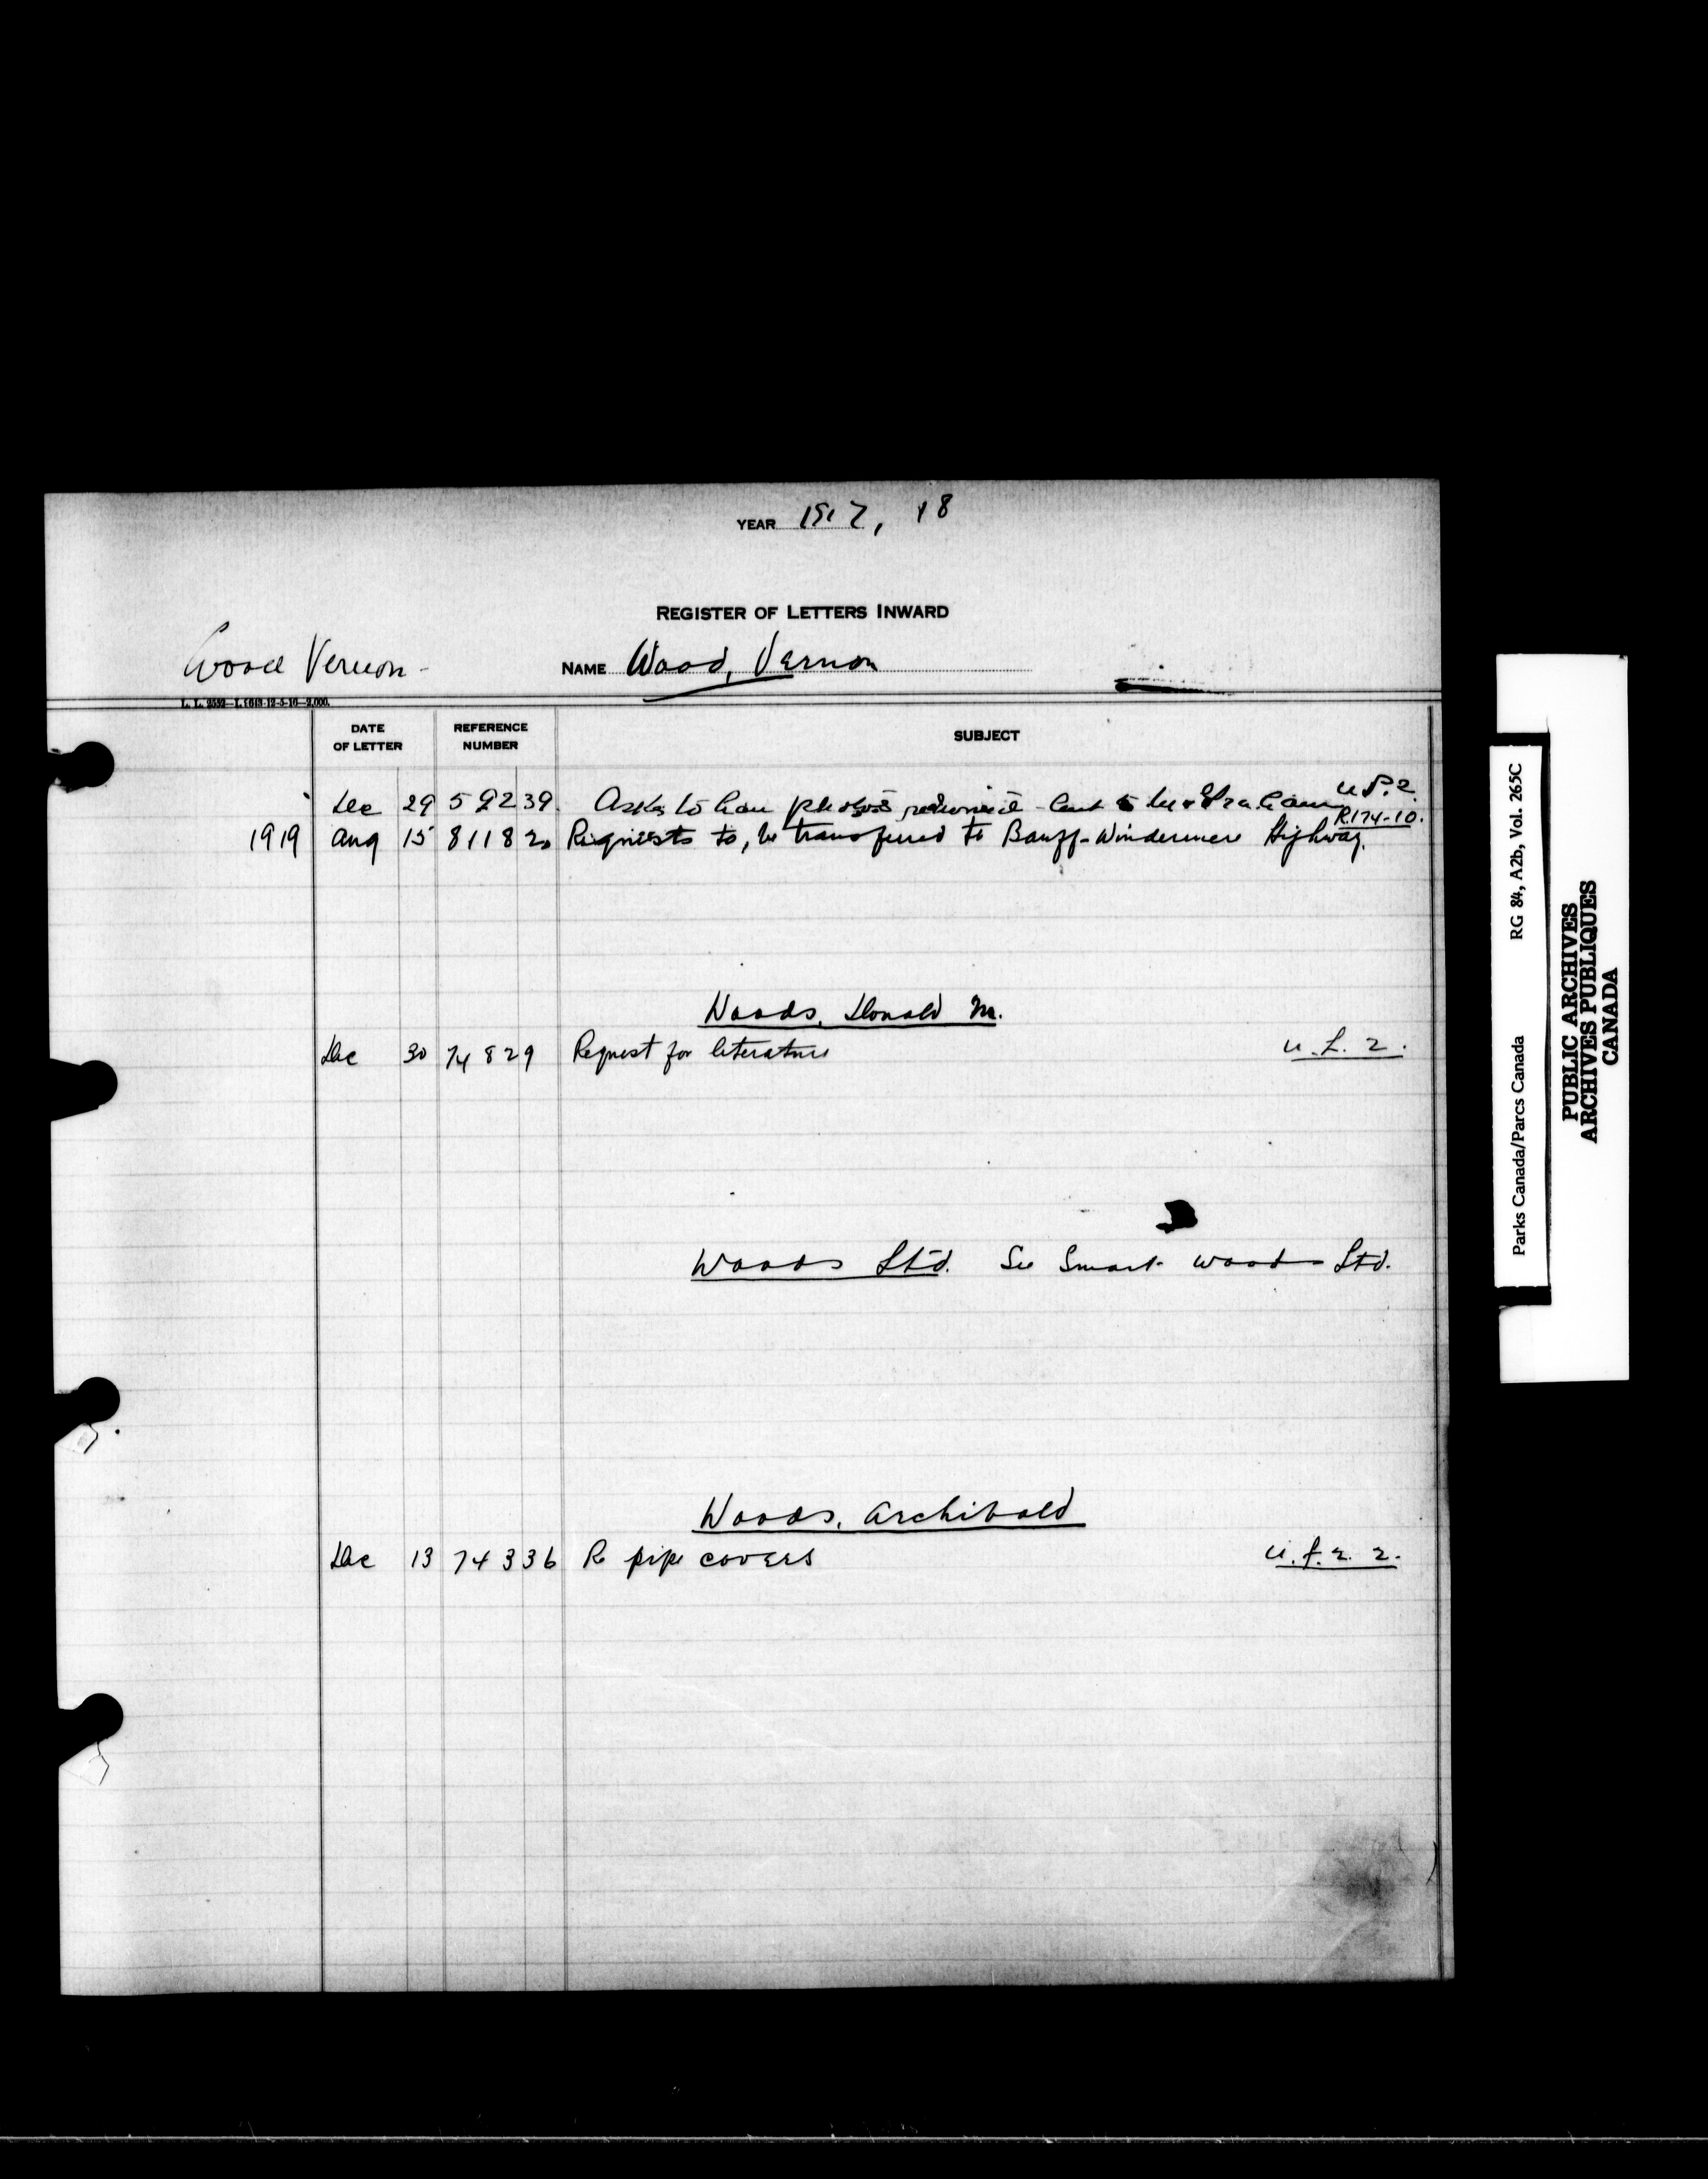 YEAR 1917, 18
REGISTER OF LETTERS INWARD
Wood Vernon -
NAME Wood, Vernon
L. L. 9552—L 1613-12-5-16—2,000.
DATE OF LETTER REFERENCE NUMBER SUBJECT
Dec 29 59239. Asks to have photos returned - lent to Mr Graham U.P.2.
R.174-10.
1919 Aug 15 81182 Requests to, be transferred to Banff-Windermere Highway.
Woods, Donald M.
Dec 30 74829 Request for literature U.L.2.
Woods Ltd. See Smart Woods Ltd.
Woods, Archibald
Dec 13 74336 Re pipe covers
Parks Canada/Parcs Canada RG 84, A2b, Vol. 265C
PUBLIC ARCHIVES
ARCHIVES PUBLIQUES
CANADA